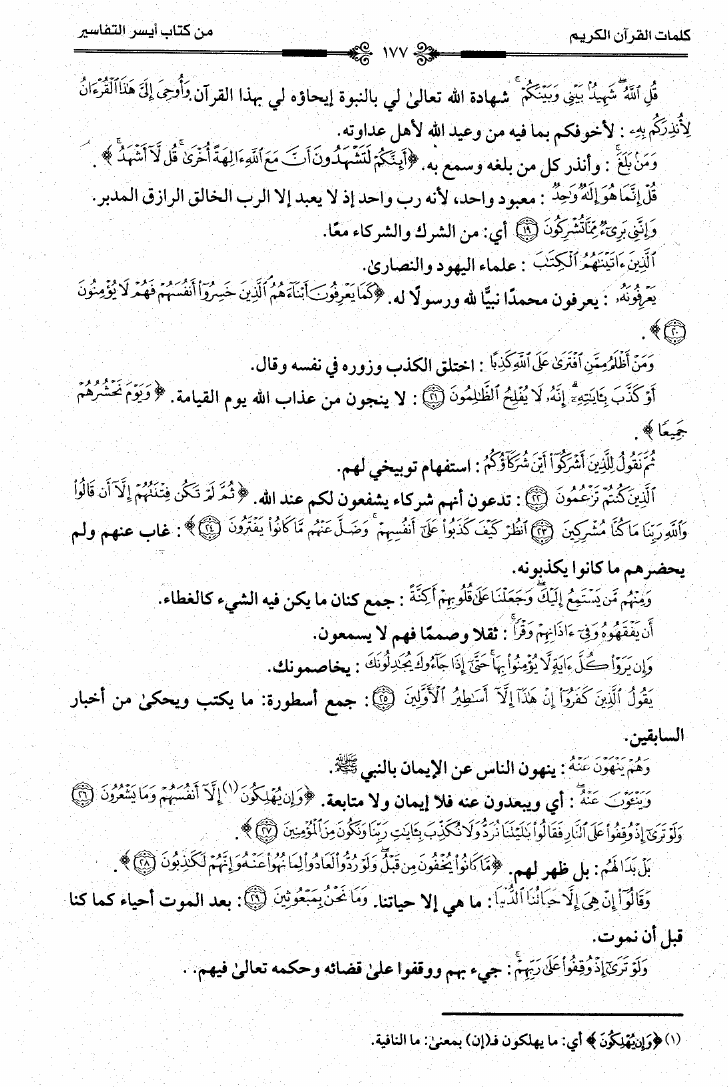 كلمات القرآن الكريم
١٧٧
من كتاب أيسر التفاسير
قُلِ اللَّهُ شَهِيدٌ بَيْنِي وَبَيْنَكُمْ : شهادة الله تعالى لي بالنبوة إيحاؤه لي بهذا القرآن. وَأُوحِيَ إِلَيَّ هَٰذَا الْقُرْءَانُ
لِأُنذِرَكُم بِهِ : لأخوفكم بما فيه من وعيد الله لأهل عداوته.
وَمَن بَلَغَ : وأنذر كل من بلغه وسمع به. ﴿أَئِنَّكُمْ لَتَشْهَدُونَ أَنَّ مَعَ اللَّهِ ءَالِهَةً أُخْرَىٰ قُل لَّا أَشْهَدُ﴾ .
قُلْ إِنَّمَا هُوَ إِلَٰهٌ وَاحِدٌ : معبود واحد، لأنه رب واحد إذ لا يعبد إلا الرب الخالق الرازق المدبر.
وَإِنَّنِي بَرِيءٌ مِّمَّا تُشْرِكُونَ ١٩ أي: من الشرك والشركاء معًا.
الَّذِينَ ءَاتَيْنَاهُمُ الْكِتَابَ : علماء اليهود والنصارىٰ.
يَعْرِفُونَهُ : يعرفون محمدًا نبيًّا لله ورسولًا له. ﴿كَمَا يَعْرِفُونَ أَبْنَاءَهُمُ الَّذِينَ خَسِرُوا أَنفُسَهُمْ فَهُمْ لَا يُؤْمِنُونَ
٢٠﴾ .
وَمَنْ أَظْلَمُ مِمَّنِ افْتَرَىٰ عَلَى اللَّهِ كَذِبًا : اختلق الكذب وزوره في نفسه وقال.
أَوْ كَذَّبَ بِـَٔايَاتِهِ إِنَّهُ لَا يُفْلِحُ الظَّالِمُونَ ٢١ : لا ينجون من عذاب الله يوم القيامة. ﴿وَيَوْمَ نَحْشُرُهُمْ
جَمِيعًا﴾ .
ثُمَّ نَقُولُ لِلَّذِينَ أَشْرَكُوا أَيْنَ شُرَكَاؤُكُمُ : استفهام توبيخي لهم.
الَّذِينَ كُنتُمْ تَزْعُمُونَ ٢٢ : تدعون أنهم شركاء يشفعون لكم عند الله. ﴿ثُمَّ لَمْ تَكُن فِتْنَتُهُمْ إِلَّا أَن قَالُوا
وَاللَّهِ رَبِّنَا مَا كُنَّا مُشْرِكِينَ ٢٣ انظُرْ كَيْفَ كَذَبُوا عَلَىٰ أَنفُسِهِمْ وَضَلَّ عَنْهُم مَّا كَانُوا يَفْتَرُونَ ٢٤﴾: غاب عنهم ولم
يحضرهم ما كانوا يكذبونه.
وَمِنْهُم مَّن يَسْتَمِعُ إِلَيْكَ وَجَعَلْنَا عَلَىٰ قُلُوبِهِمْ أَكِنَّةً : جمع كنان ما يكن فيه الشيء كالغطاء.
أَن يَفْقَهُوهُ وَفِي ءَاذَانِهِمْ وَقْرًا : ثقلا وصممًا فهم لا يسمعون.
وَإِن يَرَوْا كُلَّ ءَايَةٍ لَّا يُؤْمِنُوا بِهَا حَتَّىٰ إِذَا جَاءُوكَ يُجَادِلُونَكَ : يخاصمونك.
يَقُولُ الَّذِينَ كَفَرُوا إِنْ هَٰذَا إِلَّا أَسَاطِيرُ الْأَوَّلِينَ ٢٥: جمع أسطورة: ما يكتب ويحكىٰ من أخبار
السابقين.
وَهُمْ يَنْهَوْنَ عَنْهُ : ينهون الناس عن الإيمان بالنبي ﷺ.
وَيَنْـَٔوْنَ عَنْهُ : أي ويبعدون عنه فلا إيمان ولا متابعة. ﴿وَإِن يُهْلِكُونَ (١) إِلَّا أَنفُسَهُمْ وَمَا يَشْعُرُونَ ٢٦
وَلَوْ تَرَىٰ إِذْ وُقِفُوا عَلَى النَّارِ فَقَالُوا يَا لَيْتَنَا نُرَدُّ وَلَا نُكَذِّبَ بِـَٔايَاتِ رَبِّنَا وَنَكُونَ مِنَ الْمُؤْمِنِينَ ٢٧﴾.
بَلْ بَدَا لَهُم : بل ظهر لهم. ﴿مَّا كَانُوا يُخْفُونَ مِن قَبْلُ وَلَوْ رُدُّوا لَعَادُوا لِمَا نُهُوا عَنْهُ وَإِنَّهُمْ لَكَاذِبُونَ ٢٨﴾.
وَقَالُوا إِنْ هِيَ إِلَّا حَيَاتُنَا الدُّنْيَا: ما هي إلا حياتنا. وَمَا نَحْنُ بِمَبْعُوثِينَ ٢٩: بعد الموت أحياء كما كنا
قبل أن نموت.
وَلَوْ تَرَىٰ إِذْ وُقِفُوا عَلَىٰ رَبِّهِمْ : جيء بهم ووقفوا علىٰ قضائه وحكمه تعالىٰ فيهم. .
(١) ﴿وَإِن يُهْلِكُونَ﴾ أي: ما يهلكون فـ(إن) بمعنىٰ: ما النافية.